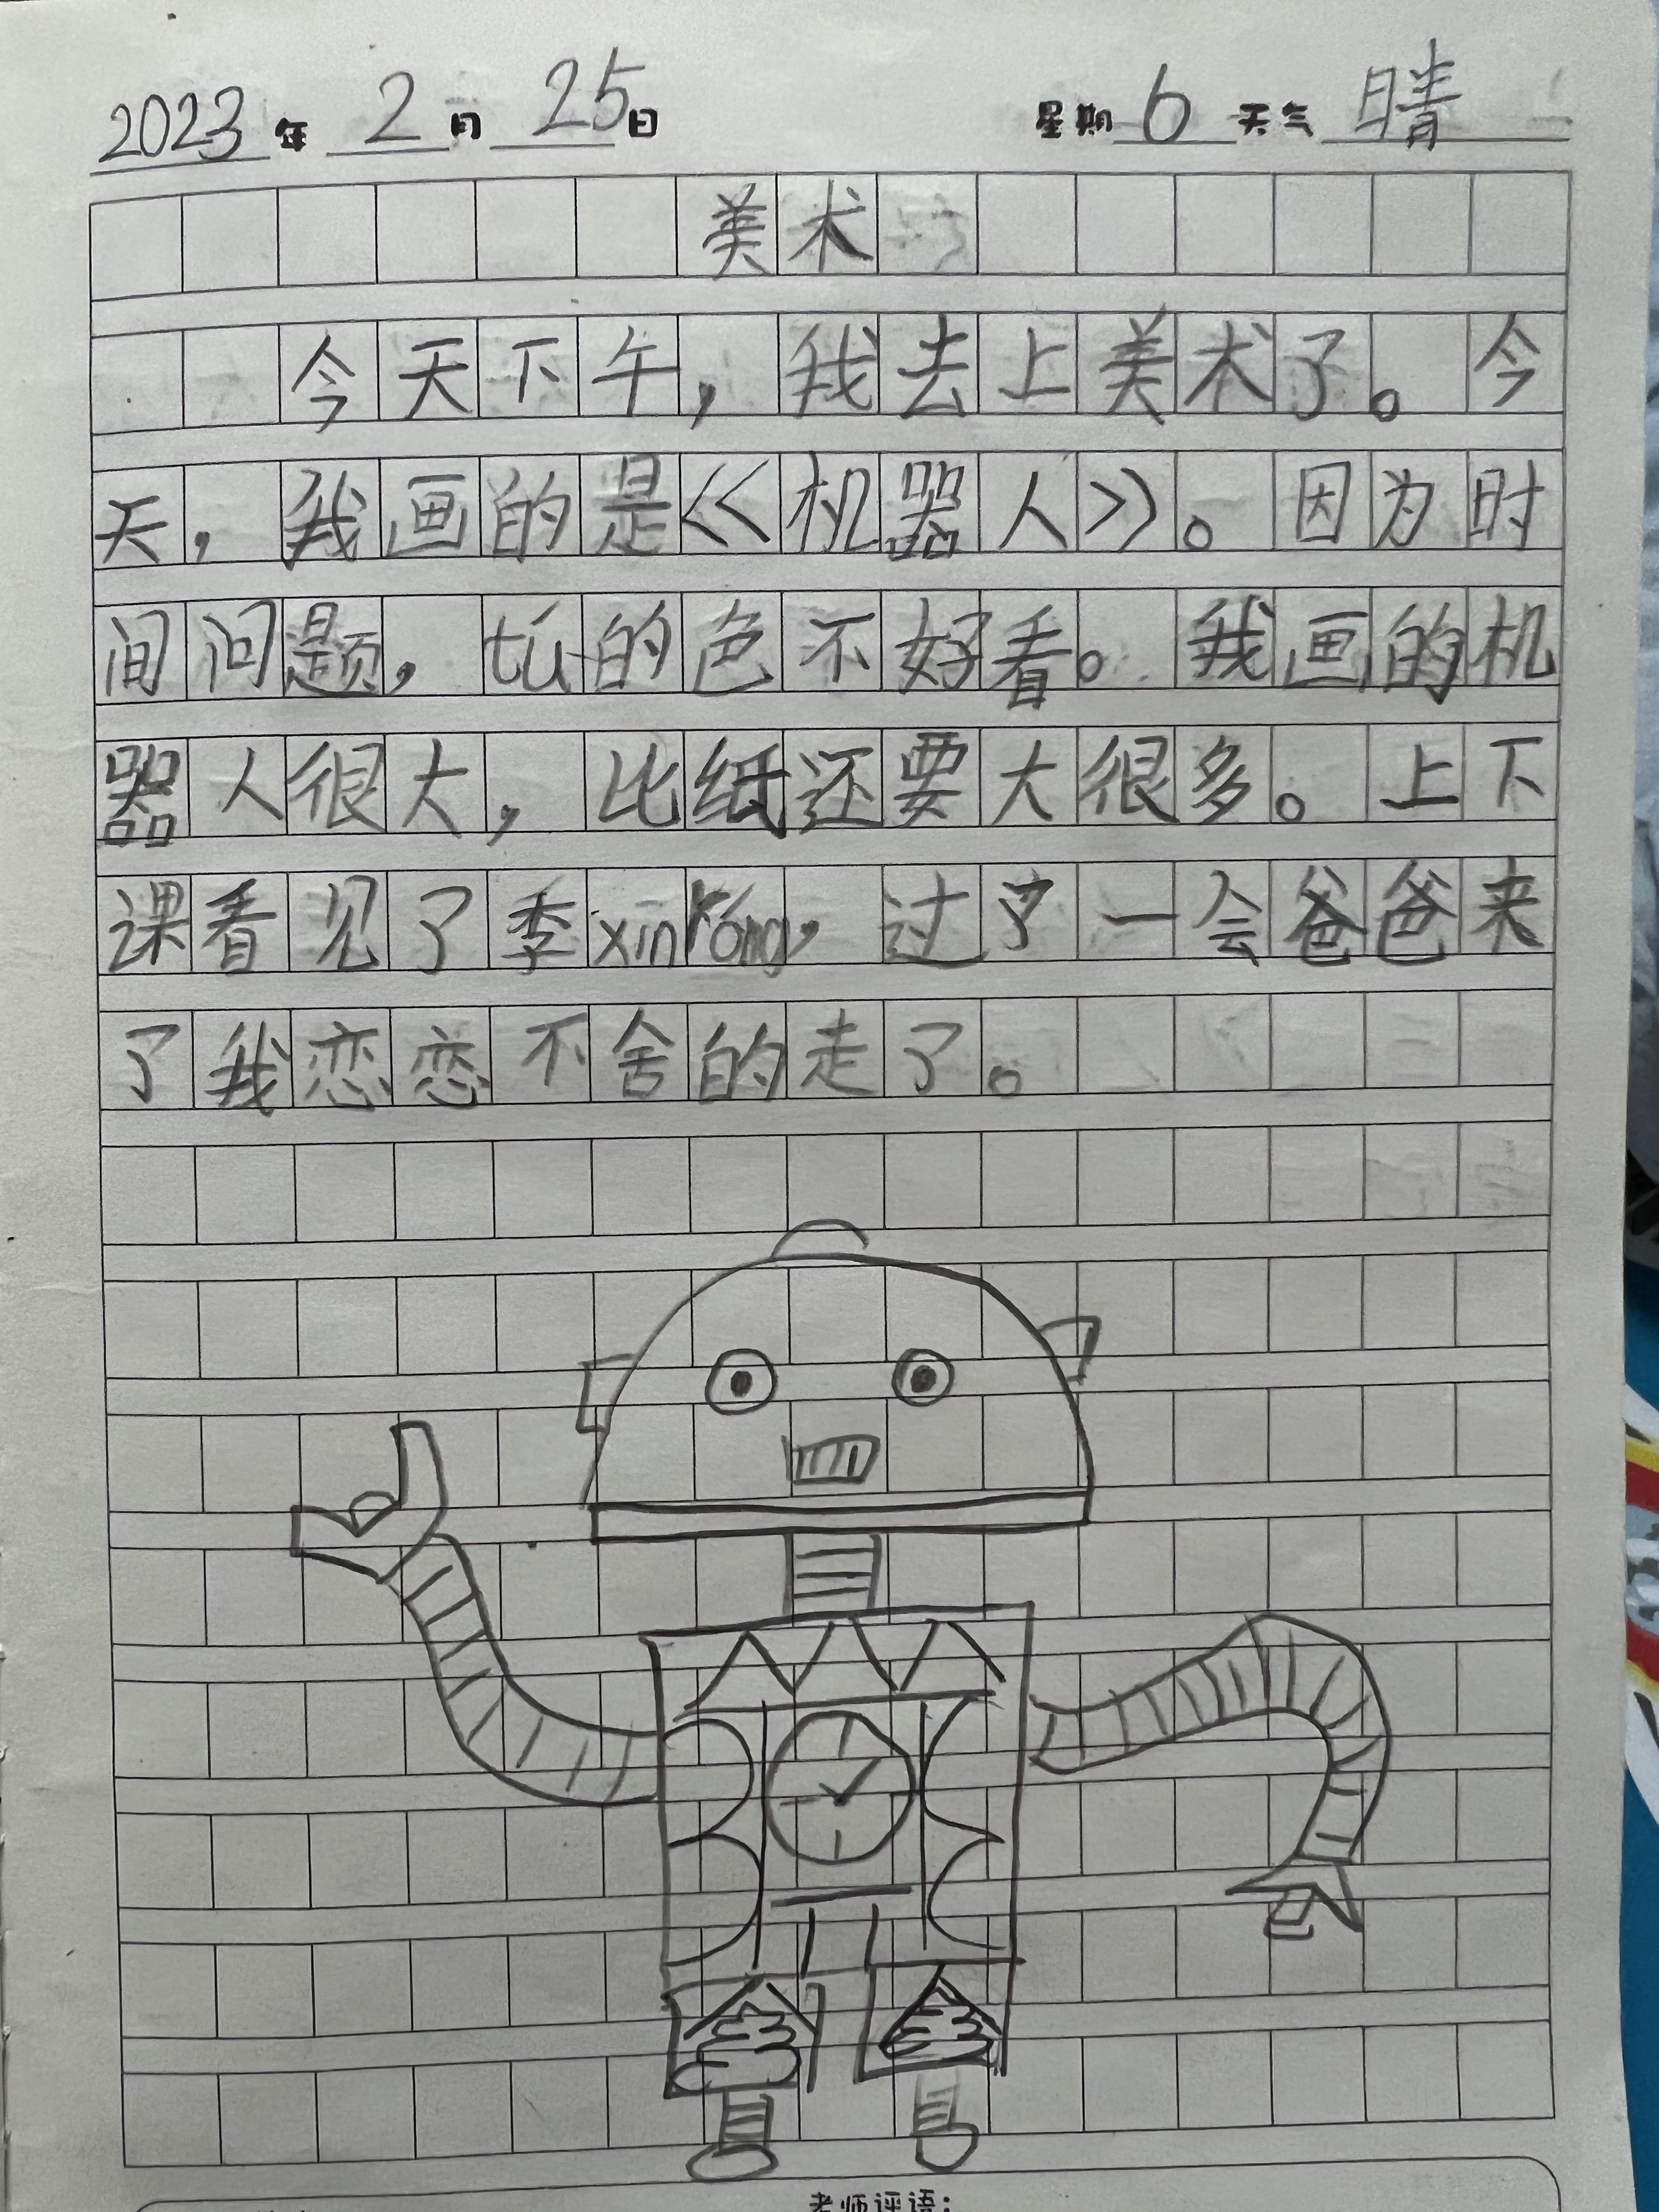 2023年 2月 25日 星期 6 天气 晴
美术
今天下午，我去上美术了。今
天，我画的是《机器人》。因为时
间问题，tú的色不好看。我画的机
器人很大，比纸还要大很多。上下
课看见了李xīnróng，过了一会爸爸来
了我恋恋不舍的走了。
老师评语：